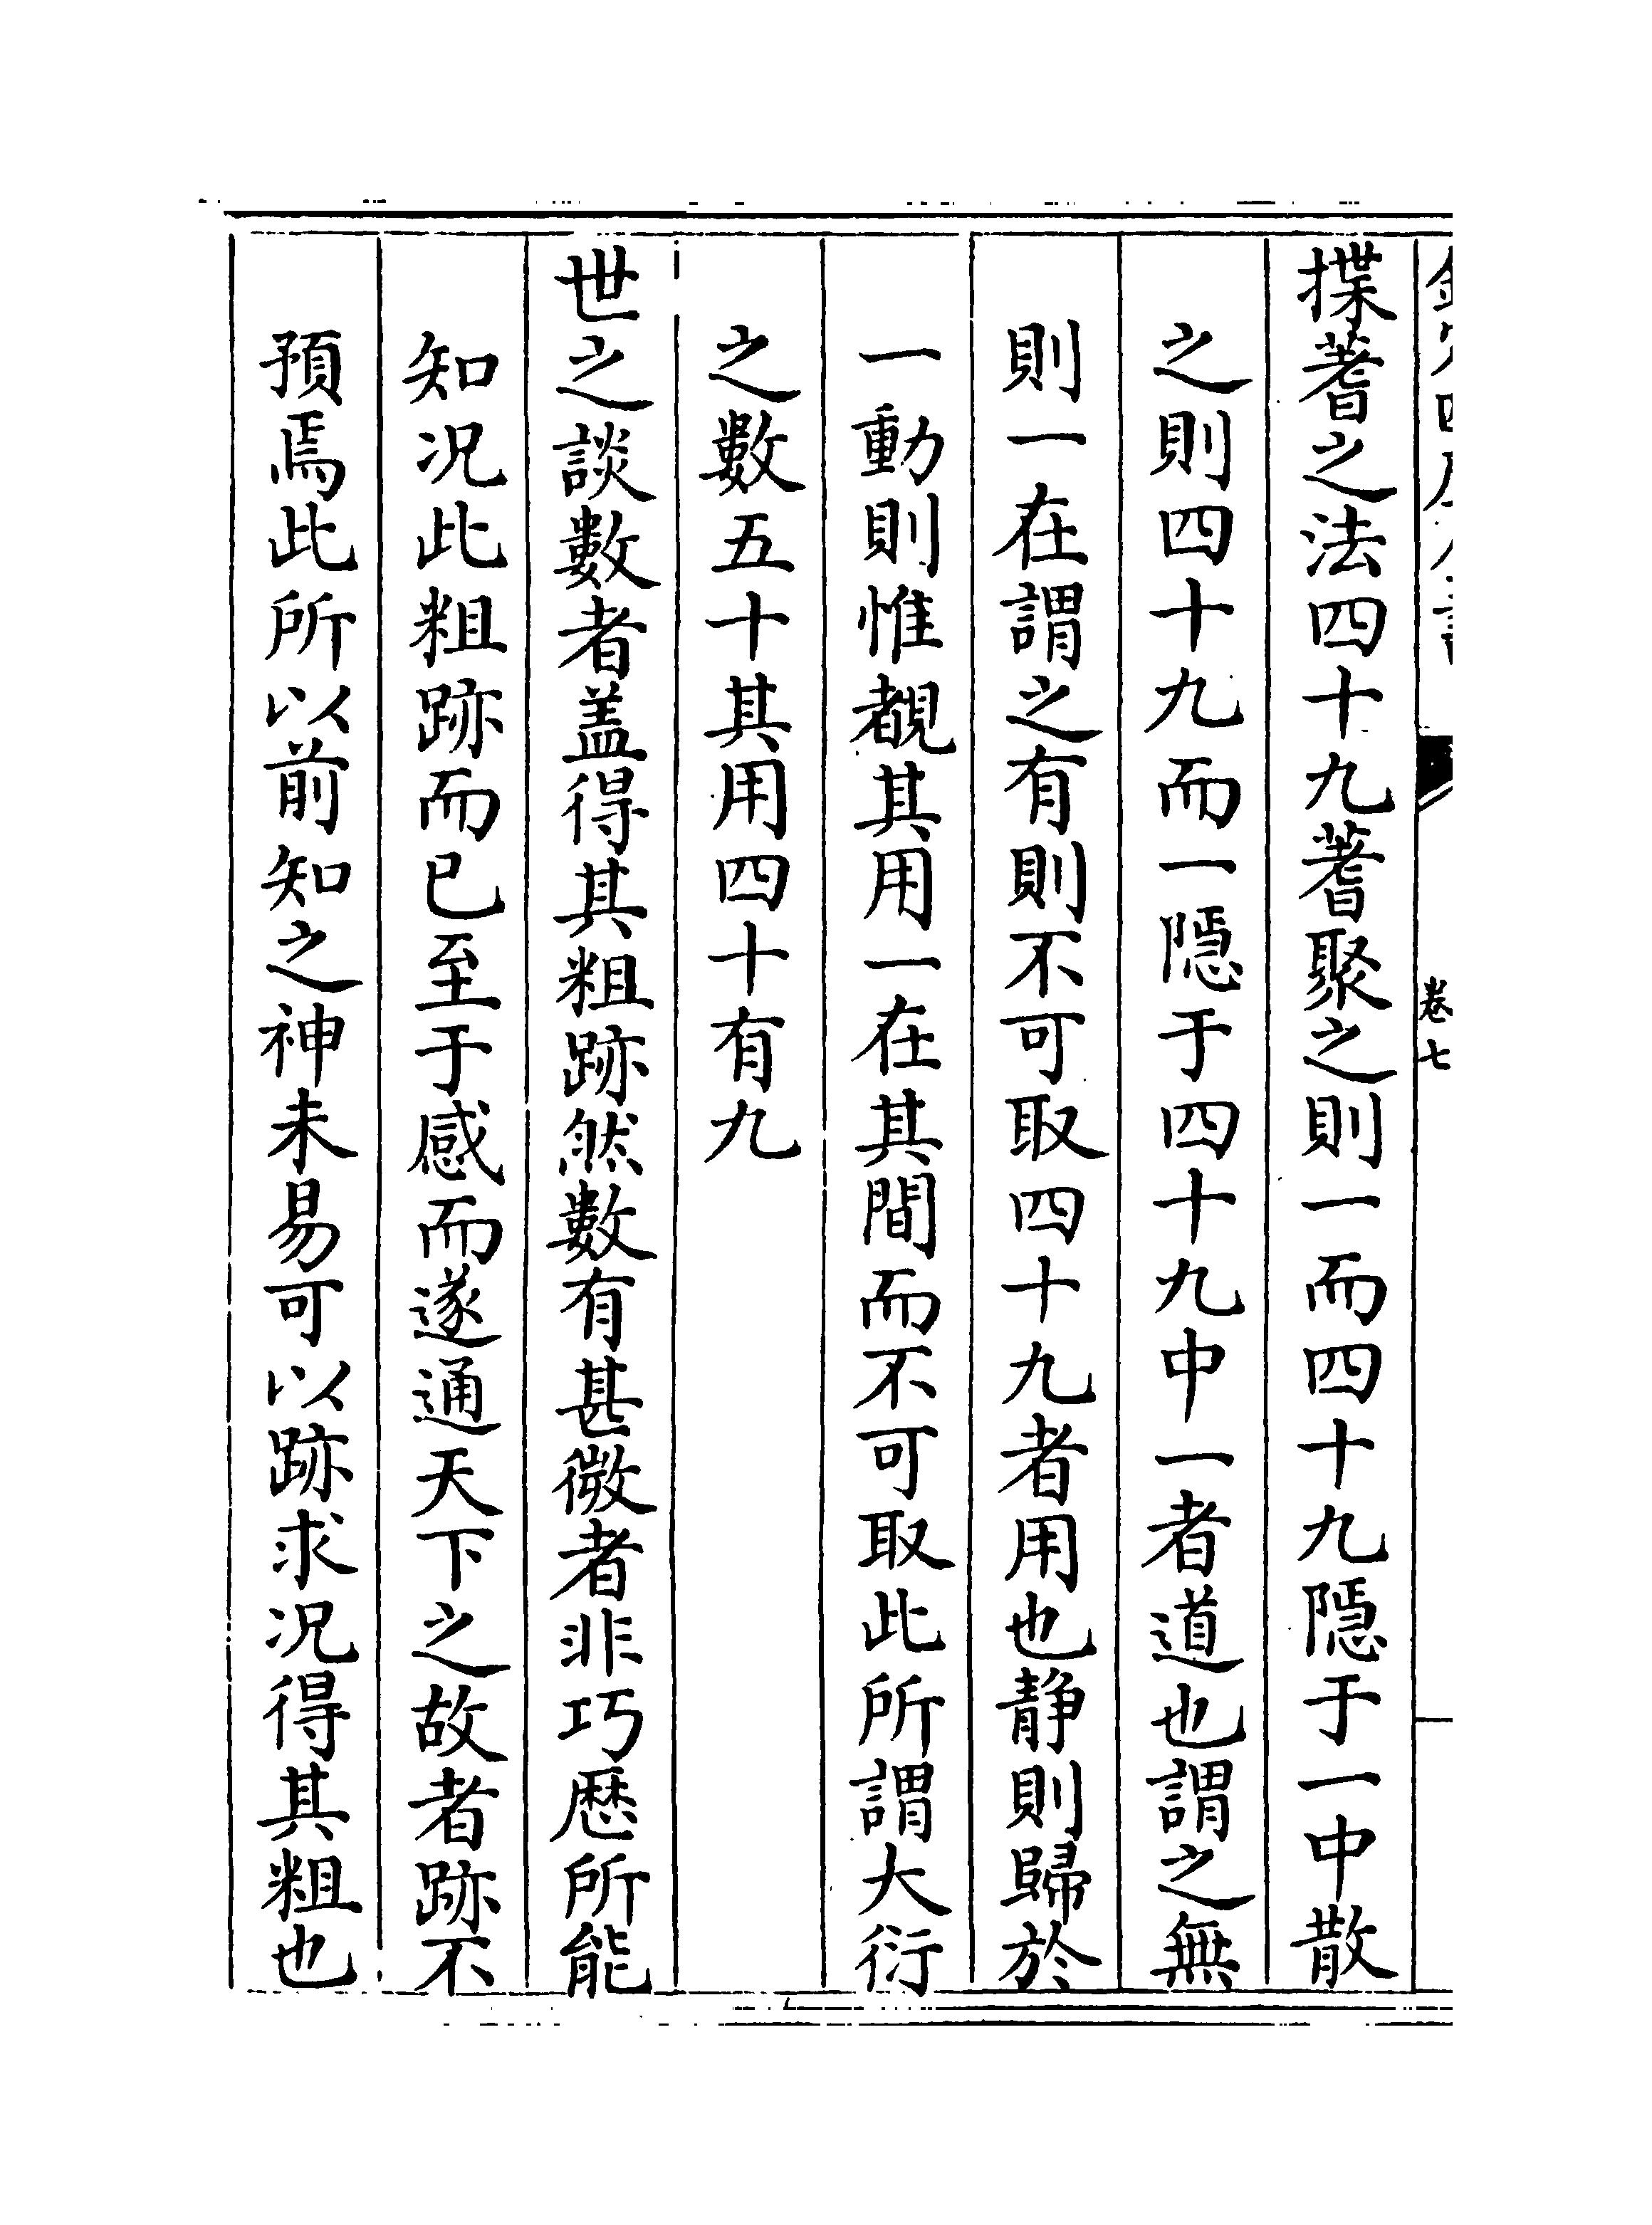 卷七
揲蓍之法四十九蓍聚之則一而四十九隱于一中散
之則四十九而一隱于四十九中一者道也謂之無
則一在謂之有則不可取四十九者用也静則歸於
一動則惟覩其用一在其間而不可取此所謂大衍
之數五十其用四十有九
世之談數者盖得其粗跡然數有甚微者非巧厯所能
知况此粗跡而已至于感而遂通天下之故者跡不
預焉此所以前知之神未易可以跡求况得其粗也